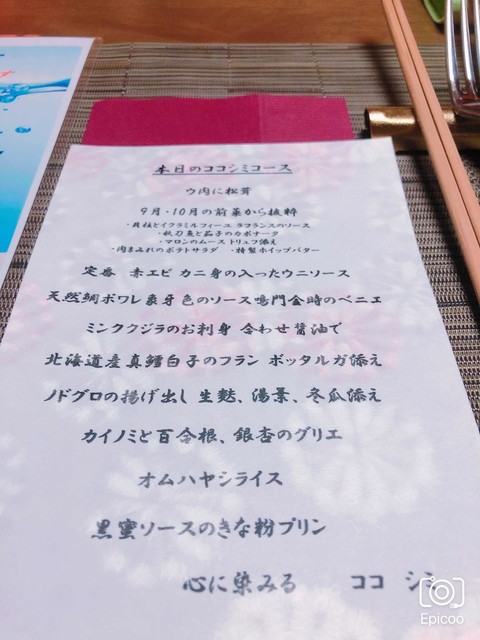 本日のココシミコース
ウ肉に松茸
9月・10月の前菜から抜粋
・貝柱とイクラミルフィーユ ラフランスのソース
・秋刀魚と茄子のカポナータ
・マロンのムース トリュフ添え
・肉まみれのポテトサラダ ・特製ホイップバター
定番 赤エビ カニ身の入ったウニソース
天然鯛ポワレ象牙色のソース鳴門金時のベニエ
ミンククジラのお刺身 合わせ醤油で
北海道産真鱈白子のフラン ボッタルガ添え
ノドグロの揚げ出し 生麩、湯葉、冬瓜添え
カイノミと百合根、銀杏のグリエ
オムハヤシライス
黒蜜ソースのきな粉プリン
心に染みる ココ シミ
Epicoo